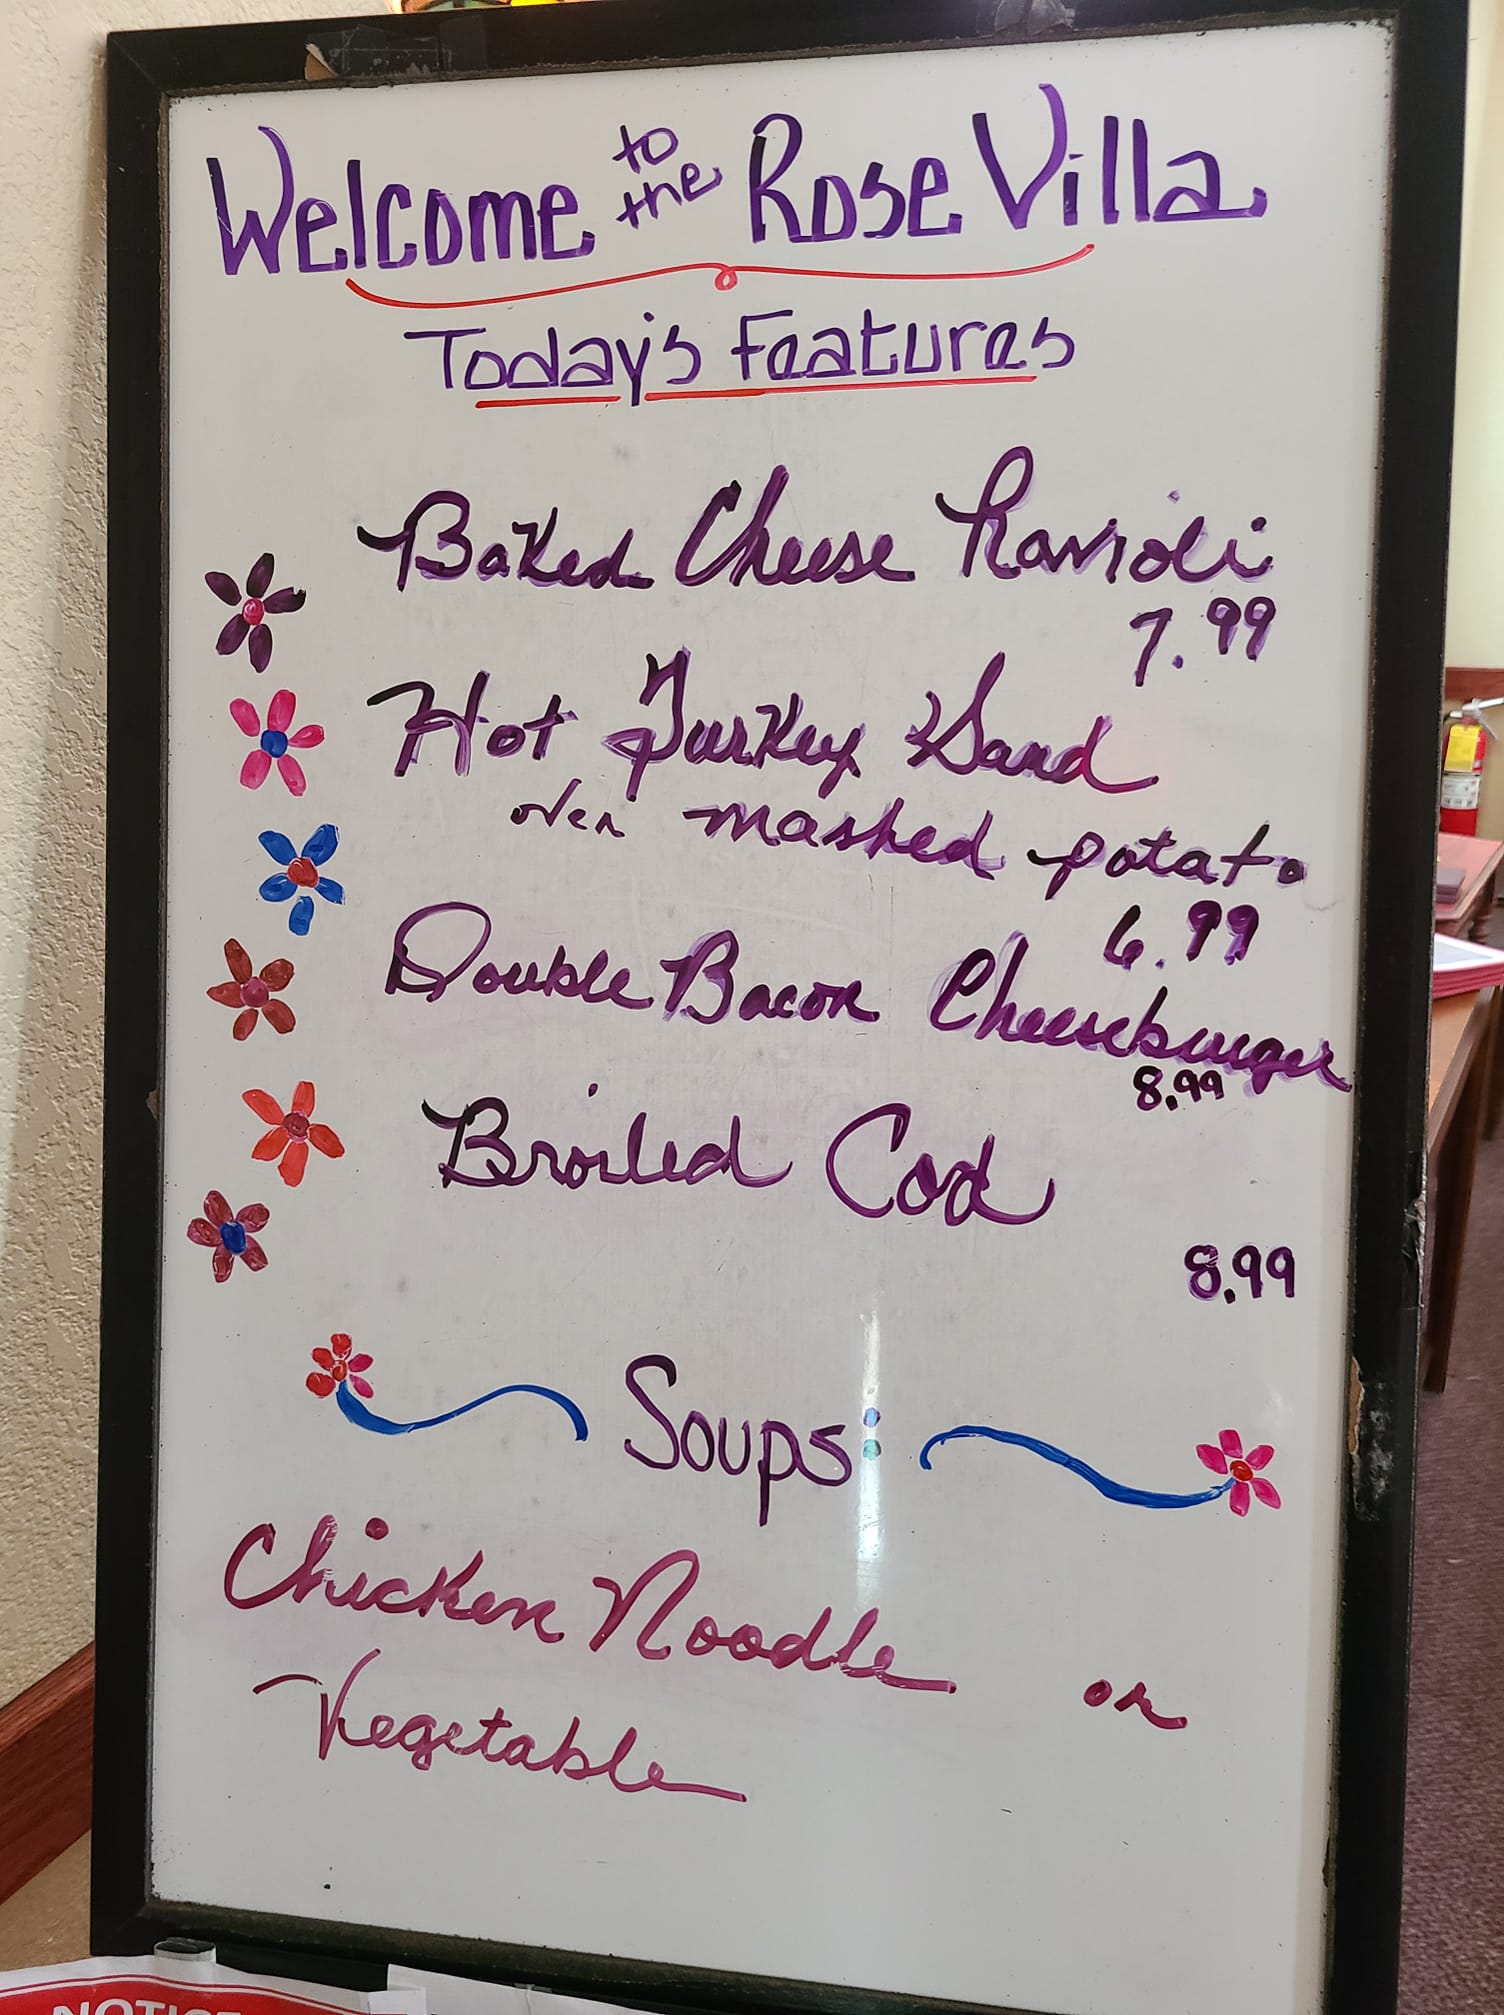 Welcome to the Rose Villa
Today's Features
Baked Cheese Ravioli
7.99
Hot Turkey Sand
over mashed potato
6.99
Double Bacon Cheeseburger
8.99
Broiled Cod
8.99
Soups:
Chicken Noodle or
Vegetable
NOTICE